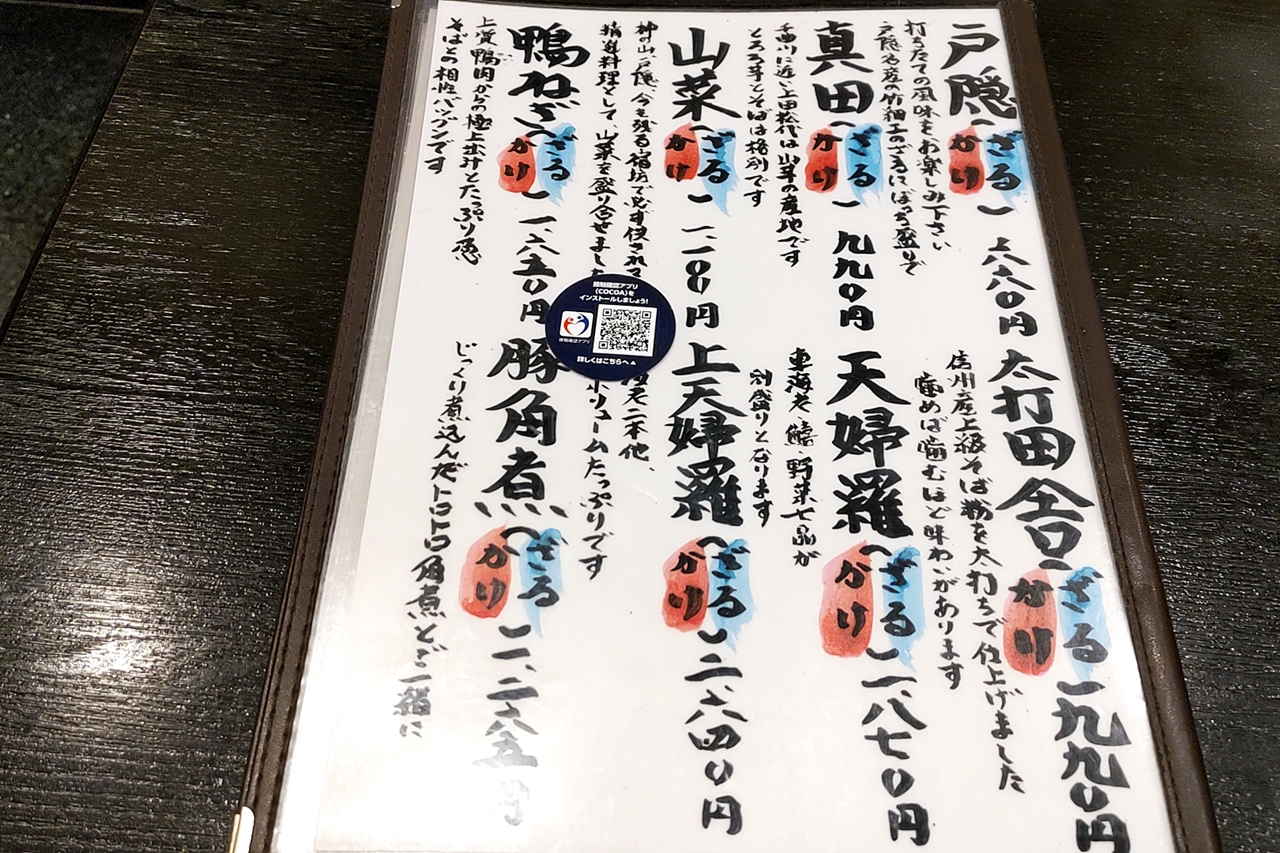 戸隠(ざる かけ) 八八〇円
打ちたての風味をお楽しみ下さい
戸隠名産の竹細工のざるにぼっち盛りで
真田(ざる かけ) 九九〇円
千曲川に近い上田松代は山芋の産地です
とろろ芋とそばは格別です
山菜(ざる かけ) 一一〇〇円
神の山、戸隠、今も残る宿坊で必ず使されて
精進料理として山菜を盛り合せました
鴨ねぎ(ざる かけ) 一、六五〇円
上質鴨肉からの極上出汁とたっぷり葱
そばとの相性バツグンです
太打田舎(ざる かけ) 九九〇円
信州産上級そば粉を太打ちで仕上げました
噛めば噛むほど味わいがあります
天婦羅(ざる かけ) 一、八七〇円
車海老、鱚、野菜七品が
別盛りとなります
上天婦羅(ざる かけ) 二、六四〇円
海老二本他、
ボリュームたっぷりです
豚角煮(ざる かけ) 一、二六五円
じっくり煮込んだトロトロ角煮とご一緒に
接触確認アプリ
(COCOA)を
インストールしましょう!
接触確認アプリ
詳しくはこちらへ▲